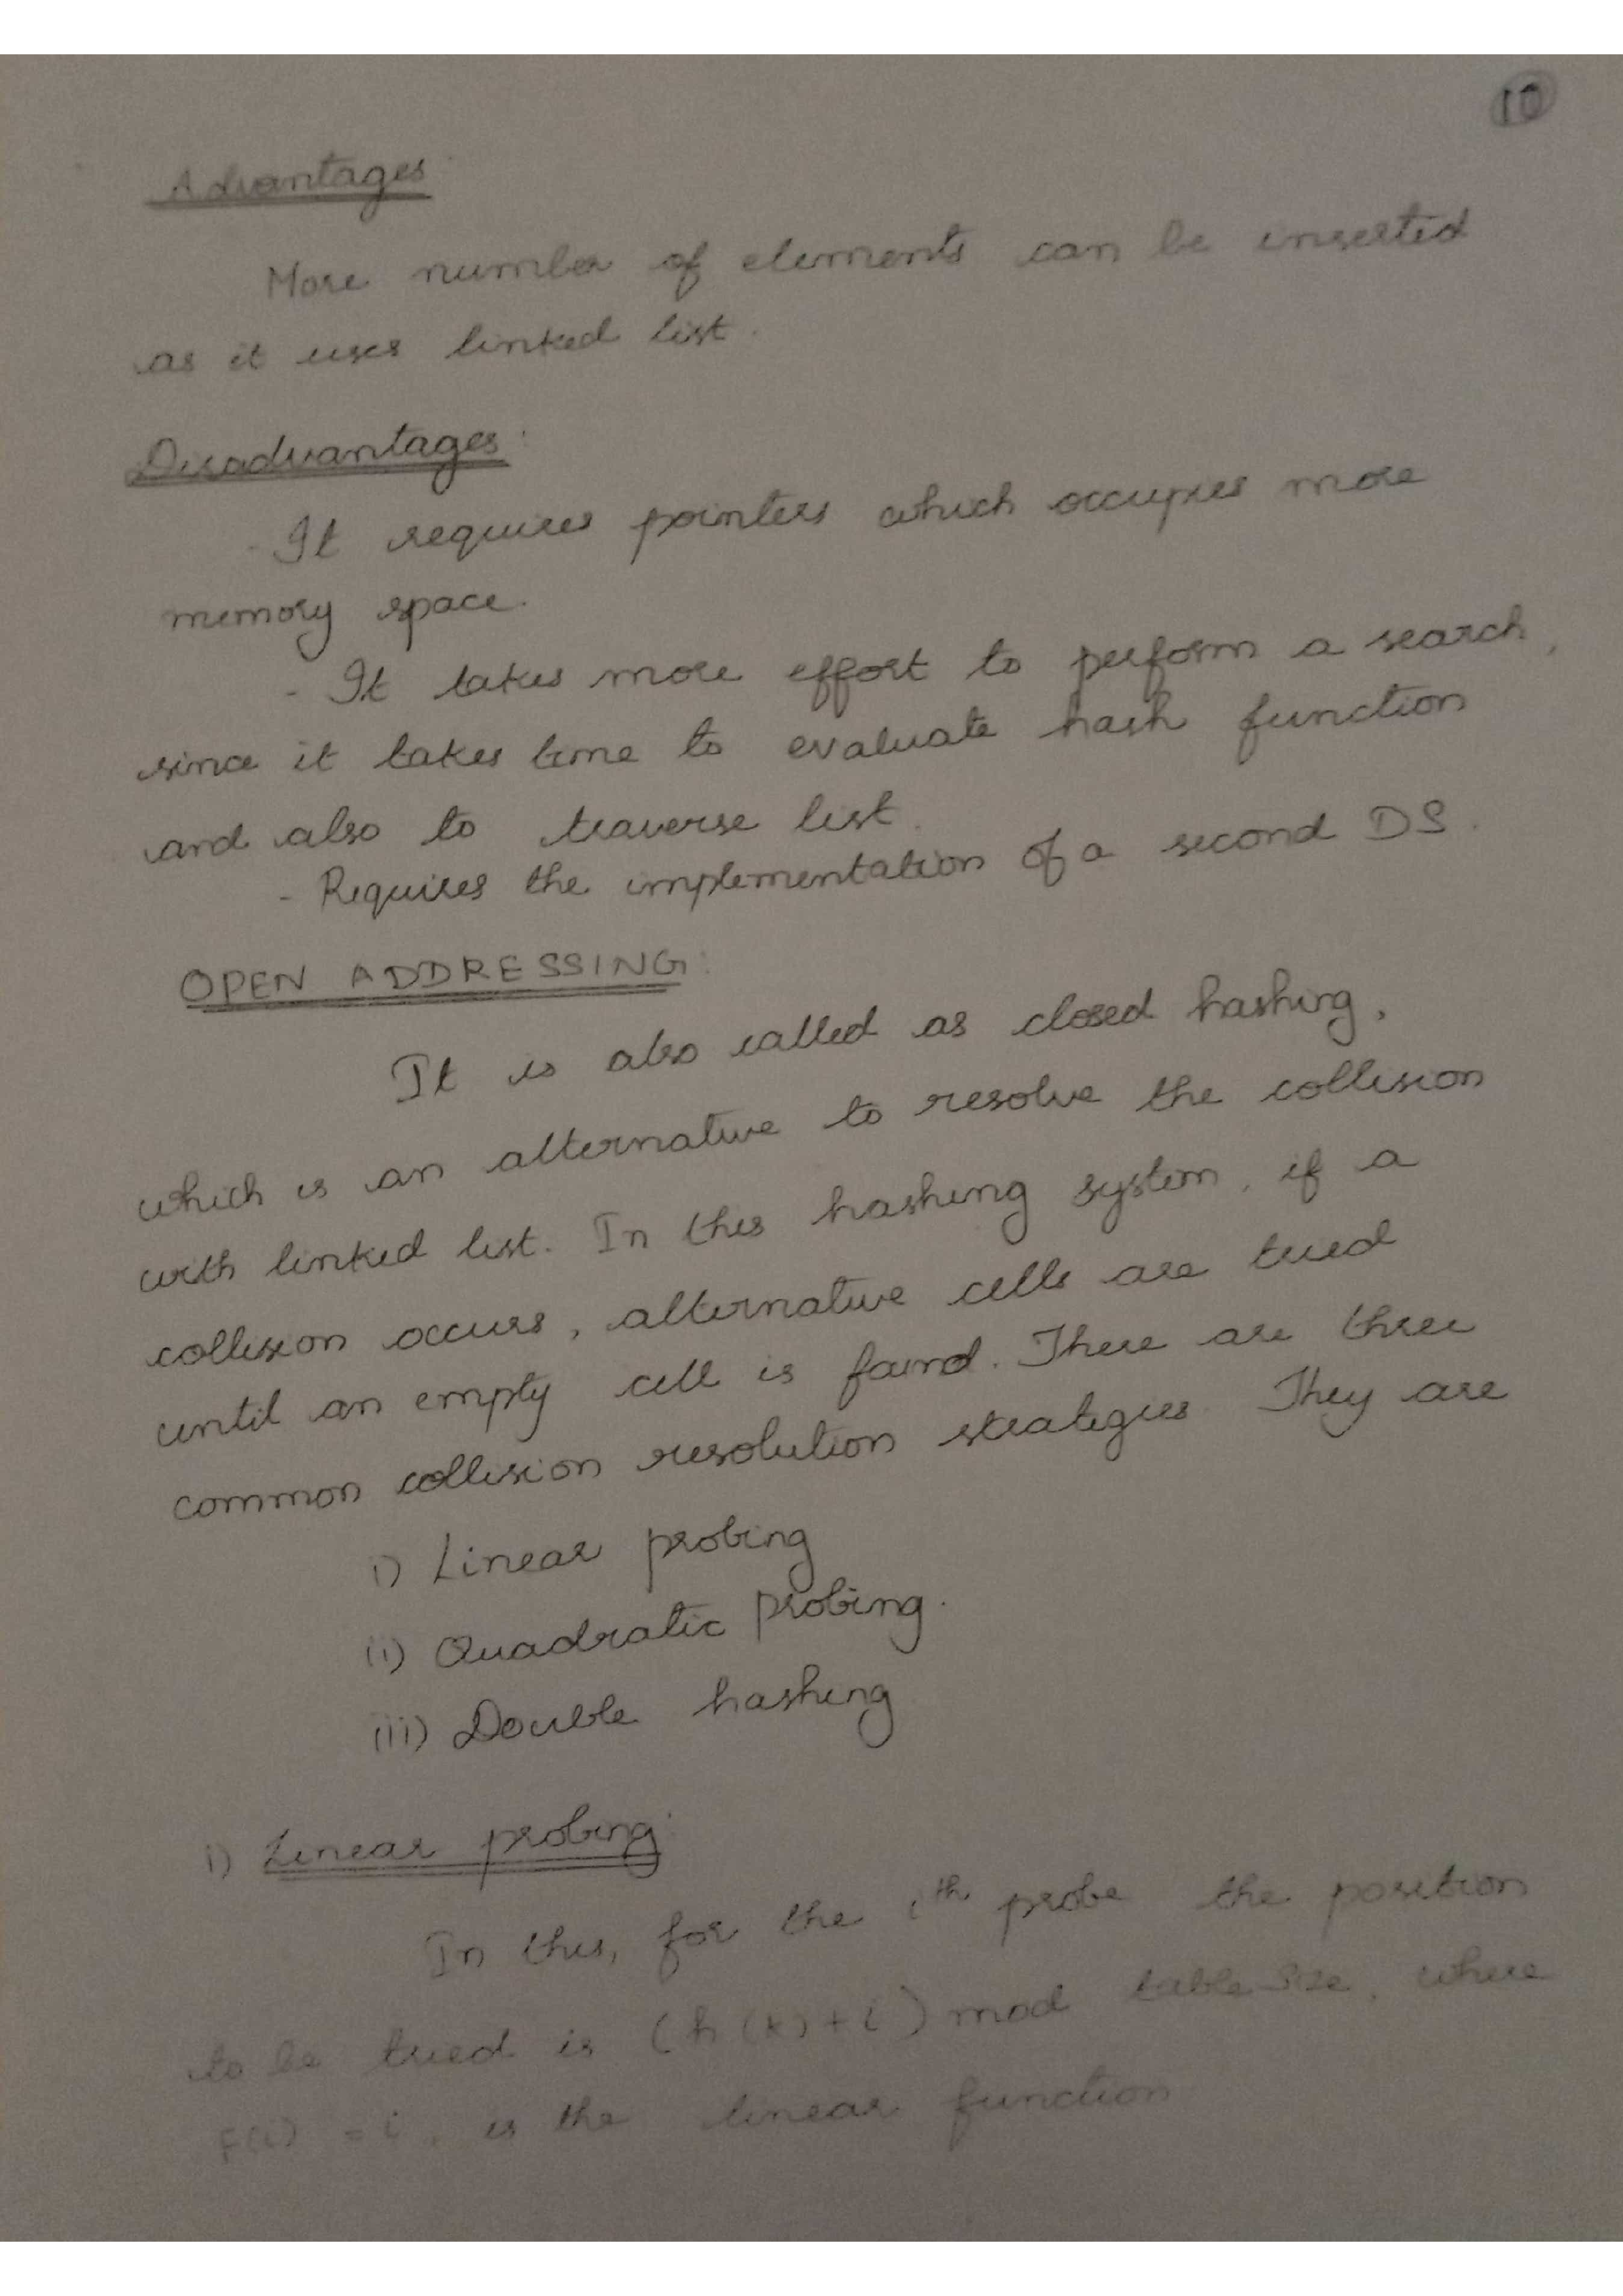 10
Advantages
More number of elements can be inserted
as it uses linked list.
Disadvantages:
- It requires pointers which occupies more
memory space.
- It takes more effort to perform a search,
since it takes time to evaluate hash function
and also to traverse list.
- Requires the implementation of a second DS.
OPEN ADDRESSING:
It is also called as closed hashing,
which is an alternative to resolve the collision
with linked list. In this hashing system, if a
collision occurs, alternative cells are tried
until an empty cell is found. There are three
common collision resolution strategies. They are
i) Linear probing
ii) Quadratic probing.
iii) Double hashing
i) Linear probing:
In this, for the ith probe the position
to be tried is (h(k)+i) mod tableSize, where
F(i) = i, is the linear function